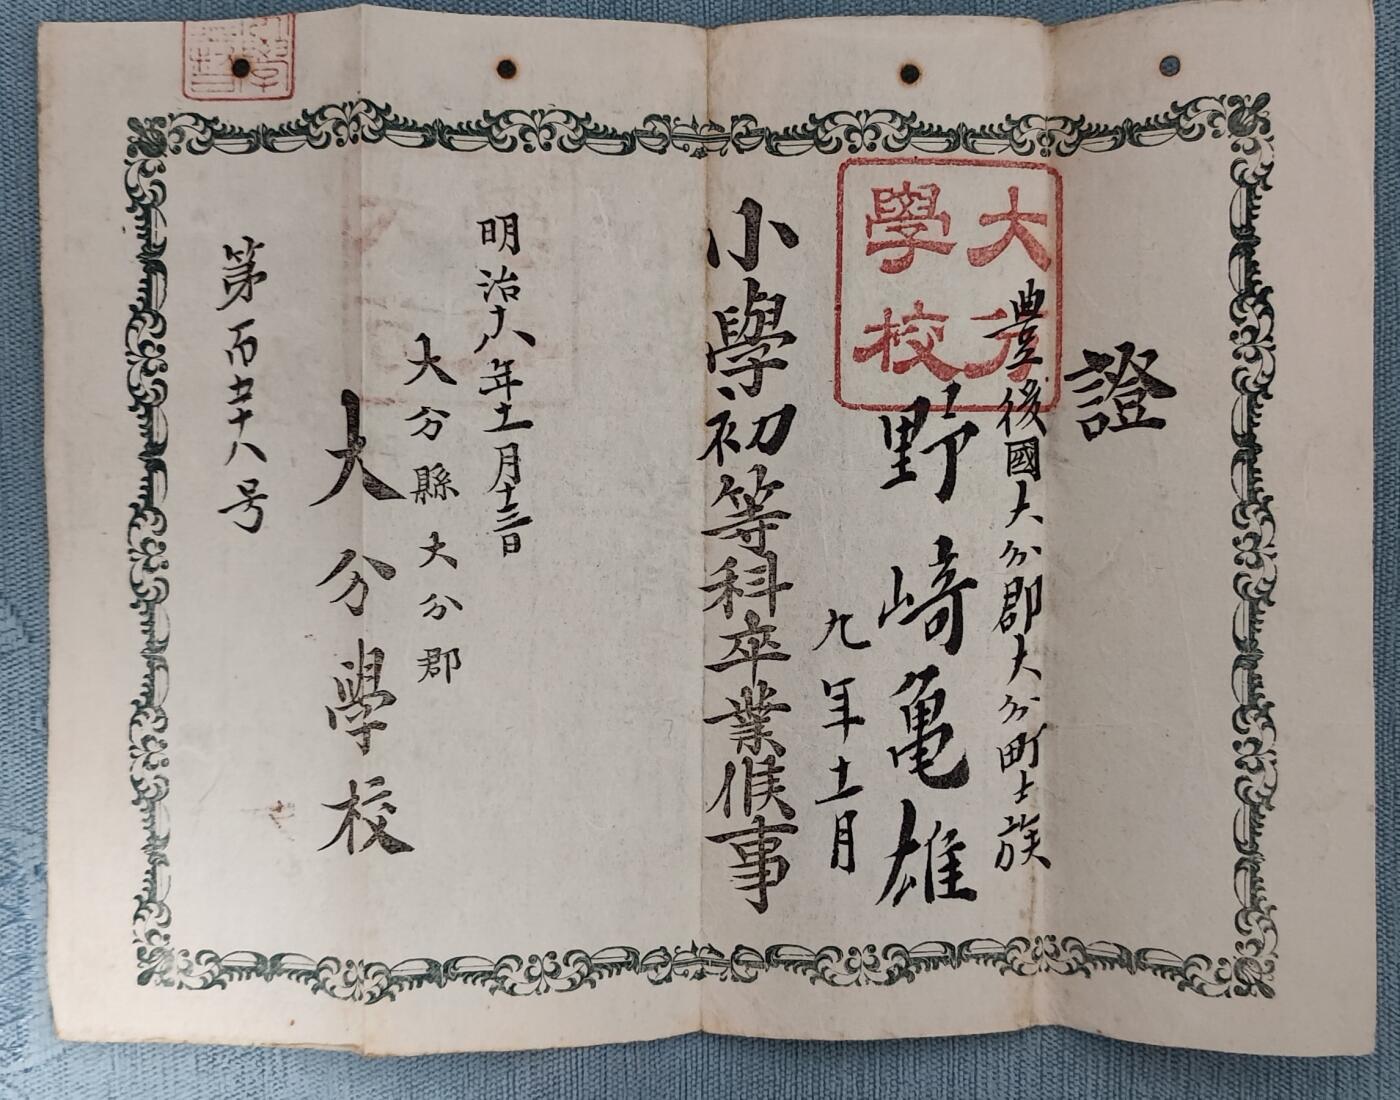 證
大分
學校
豊後國大分郡大分町士族
野﨑亀雄
九年十一月
小學初等科卒業候事
明治十八年十一月十三日
大分縣大分郡
大分學校
第百五十八号